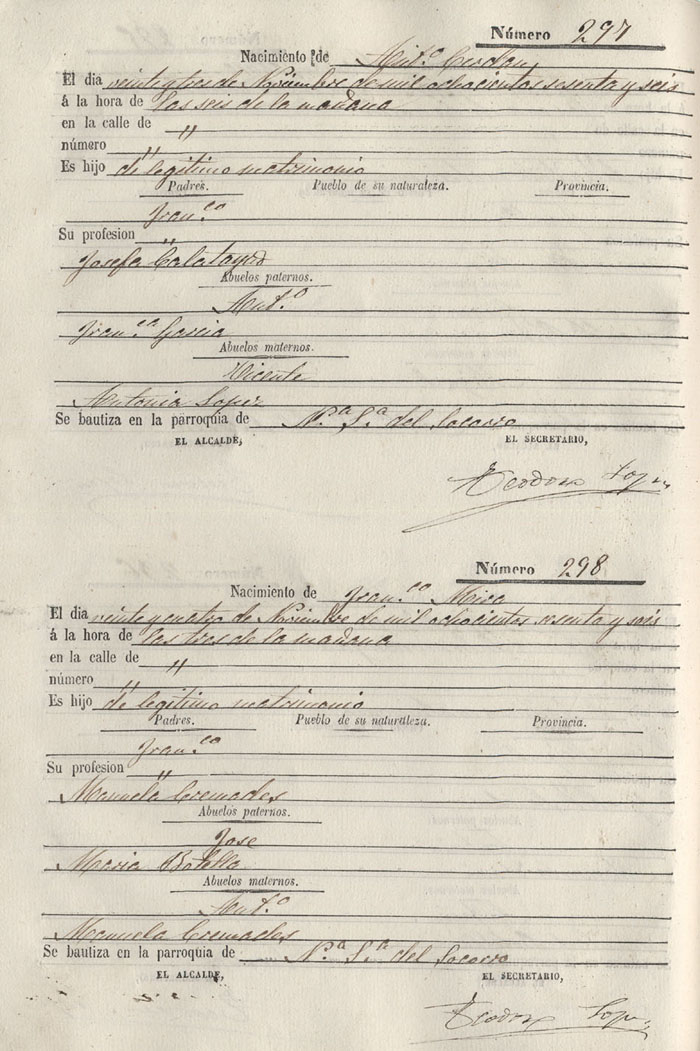 Número 297
Nacimiento de Ant.o Cerdan
El dia veinte y tres de Noviembre de mil ochocientos sesenta y seis
á la hora de las seis de la mañana
en la calle de "
número "
Es hijo de legitimo matrimonio
Padres. Pueblo de su naturaleza. Provincia.
Fran.co
Su profesion "
Josefa Calatayud
Abuelos paternos.
Ant.o
Fran.ca Garcia
Abuelos maternos.
Vicente
Antonia Lopez
Se bautiza en la parroquia de N.a S.a del Socorro
EL ALCALDE, EL SECRETARIO,
Teodoro Lopez
Número 298
Nacimiento de Fran.co Mira
El dia veinte y cuatro de Noviembre de mil ochocientos sesenta y seis
á la hora de las tres de la mañana
en la calle de "
número "
Es hijo de legitimo matrimonio
Padres. Pueblo de su naturaleza. Provincia.
Fran.co
Su profesion "
Manuela Cremades
Abuelos paternos.
Jose
Maria Botella
Abuelos maternos.
Ant.o
Manuela Cremades
Se bautiza en la parroquia de N.a S.a del Socorro
EL ALCALDE, EL SECRETARIO,
Teodoro Lopez